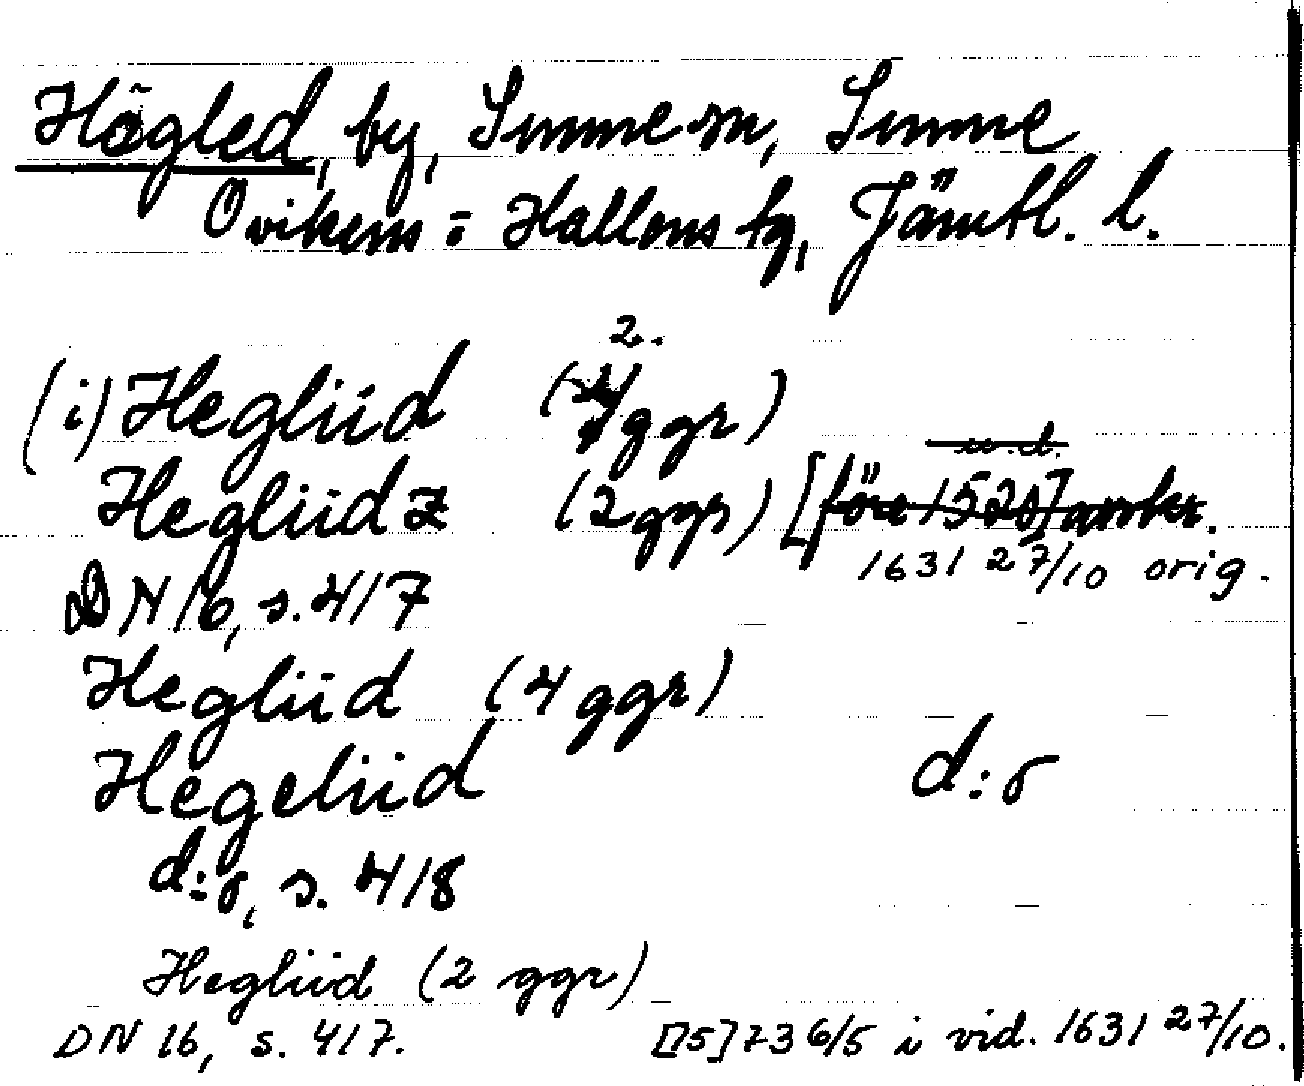 Högled, by, Sunne sn, Sunne
Ovikens = Hallens tg, Jämtl. l.
2.
(i) Hegliid (4 ggr)
u.d.
Hegliidz (2 ggr) [före 1520] avskr.
1631 27/10 orig.
DN 16, s. 417
Hegliid (4 ggr)
Hegeliid d:o
d:o, s. 418
Hegliid (2 ggr)
DN 16, s. 417. [15]73 6/5 i vid. 1631 27/10.